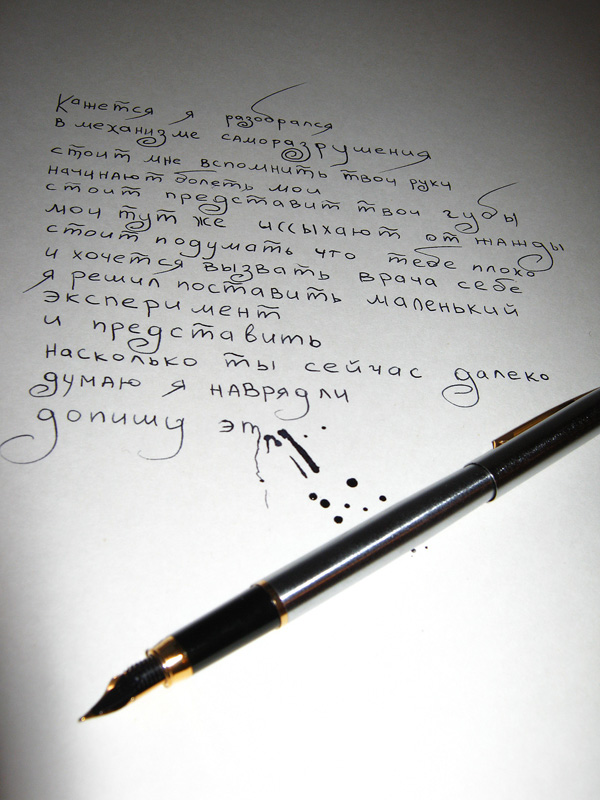 Кажется я разобрался
в механизме саморазрушения
стоит мне вспомнить твои руки
начинают болеть мои
стоит представит твои губы
мои тут же иссыхают от жажды
стоит подумать что тебе плохо
и хочется вызвать врача себе
я решил поставить маленький
эксперимент
и представить
насколько ты сейчас далеко
думаю я наврядли
допишу эт